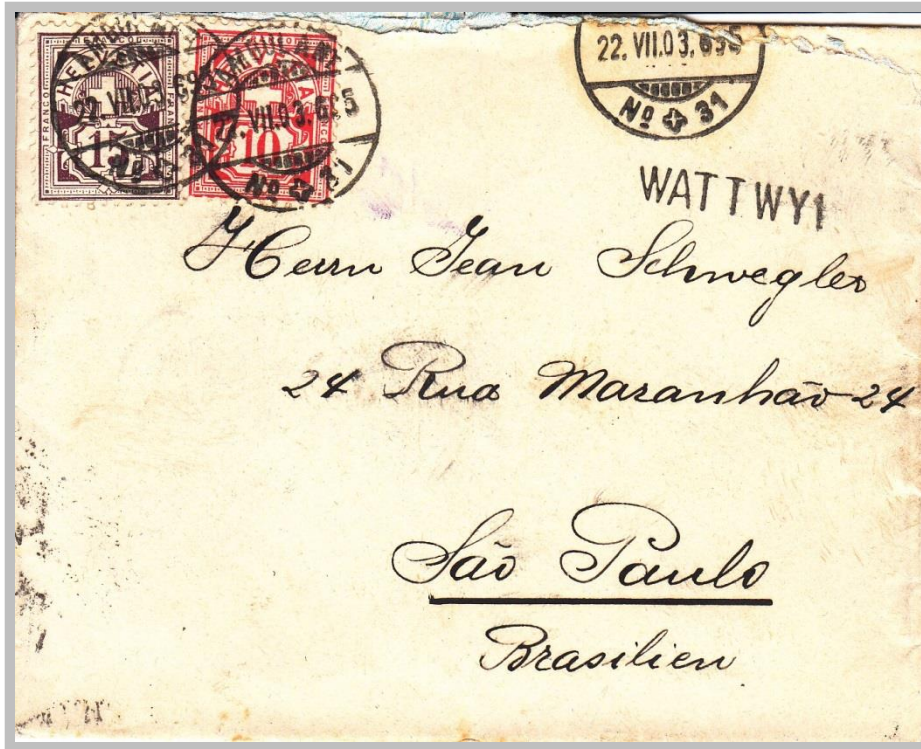 HELVETIA
FRANCO
FRANCO
15
10
22. VII. 03. 6
No 31
22. VII. 03. 6
No 31
22. VII. 03. 6
No 31
WATTWYl
Herrn Jean Schwegler
24 Rua Maranhão 24
São Paulo
Brasilien